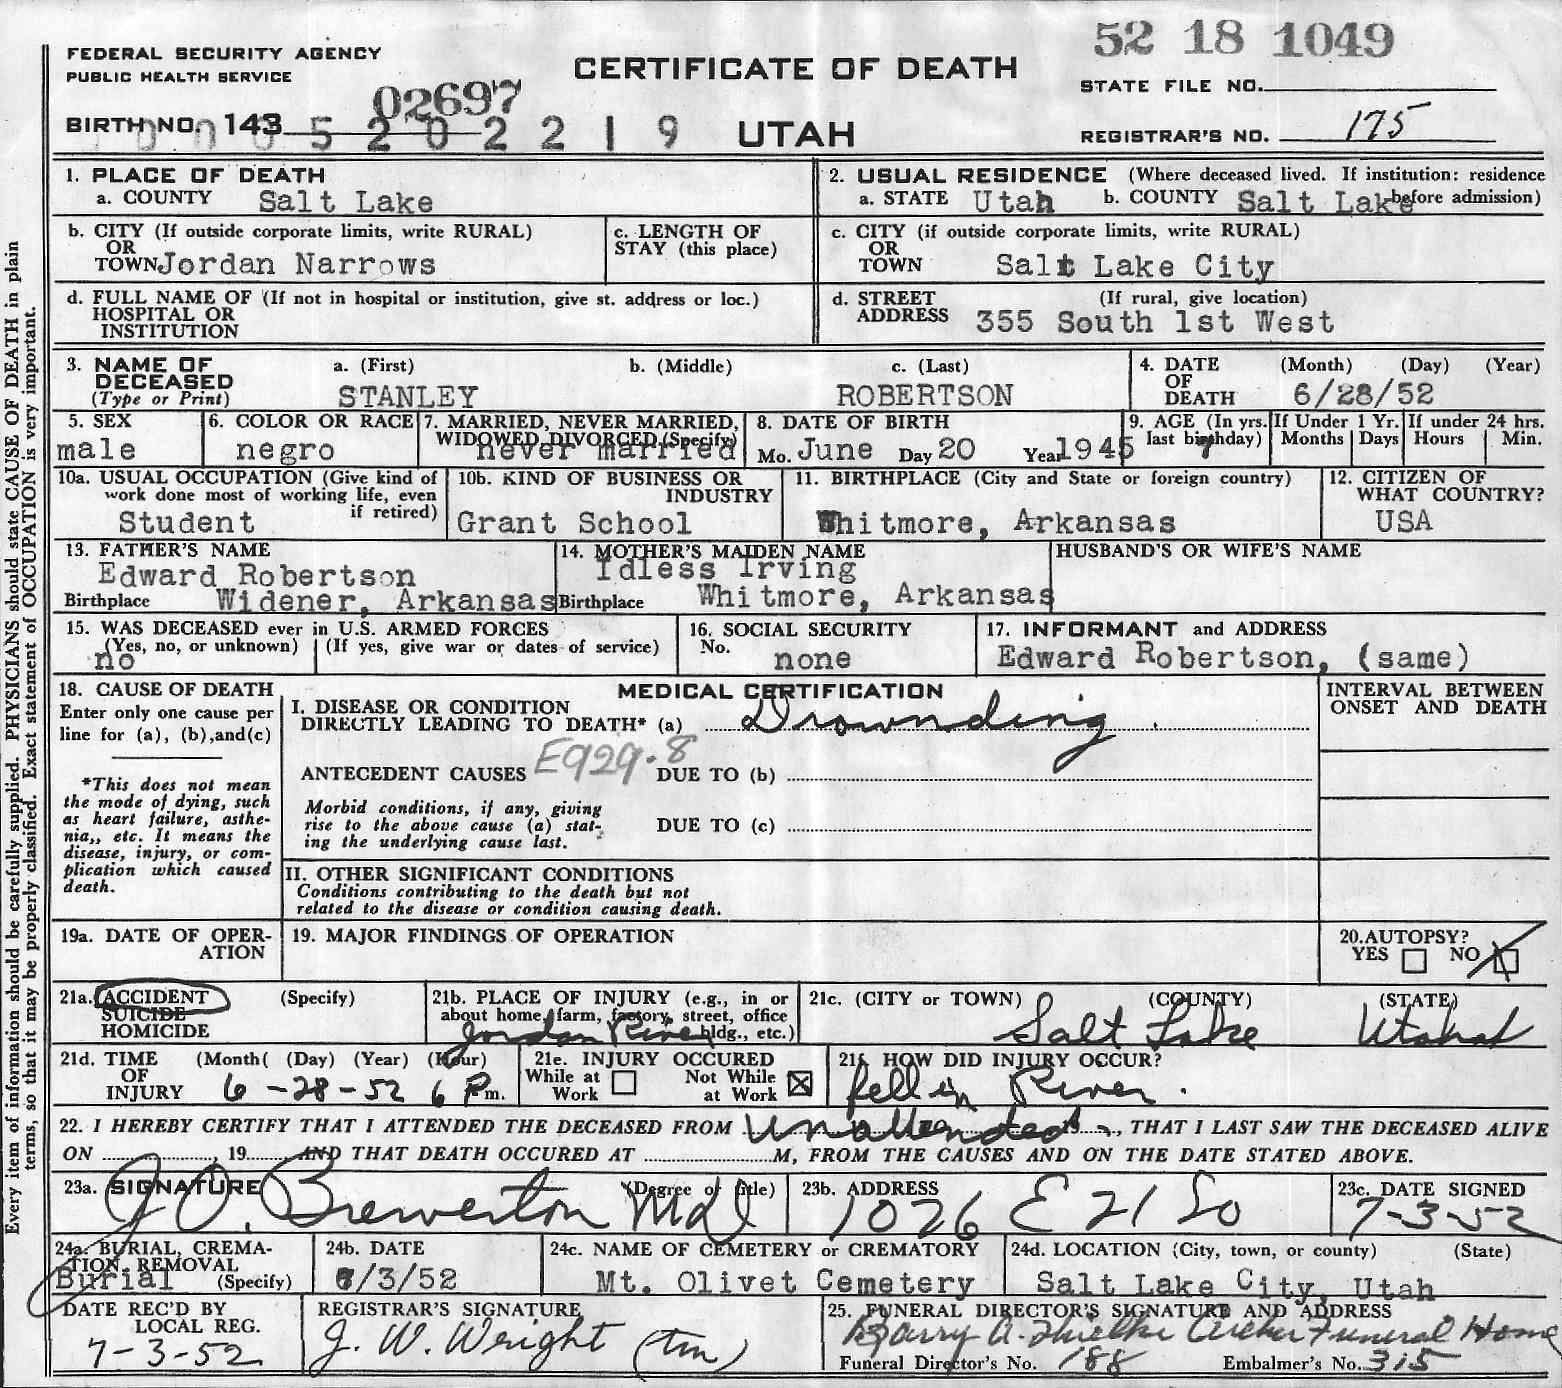 52 18 1049
FEDERAL SECURITY AGENCY
PUBLIC HEALTH SERVICE
CERTIFICATE OF DEATH
STATE FILE NO.
02697
BIRTH NO. 143
52 02219
UTAH
REGISTRAR'S NO. 175
Every item of information should be carefully supplied. PHYSICIANS should state CAUSE OF DEATH in plain
terms, so that it may be properly classified. Exact statement of OCCUPATION is very important.
1. PLACE OF DEATH
a. COUNTY Salt Lake
2. USUAL RESIDENCE (Where deceased lived. If institution: residence
a. STATE Utah b. COUNTY Salt Lake before admission)
b. CITY (If outside corporate limits, write RURAL)
OR
TOWN Jordan Narrows
c. LENGTH OF
STAY (this place)
c. CITY (if outside corporate limits, write RURAL)
OR
TOWN Salt Lake City
d. FULL NAME OF (If not in hospital or institution, give st. address or loc.)
HOSPITAL OR
INSTITUTION
d. STREET (If rural, give location)
ADDRESS 355 South 1st West
3. NAME OF a. (First) b. (Middle) c. (Last)
DECEASED
(Type or Print) STANLEY ROBERTSON
4. DATE (Month) (Day) (Year)
OF
DEATH 6/28/52
5. SEX
male
6. COLOR OR RACE
negro
7. MARRIED, NEVER MARRIED,
WIDOWED, DIVORCED (Specify)
never married
8. DATE OF BIRTH
Mo. June Day 20 Year 1945
9. AGE (In yrs.
last birthday) 7
If Under 1 Yr.
Months Days
If under 24 hrs.
Hours Min.
10a. USUAL OCCUPATION (Give kind of
work done most of working life, even
if retired)
Student
10b. KIND OF BUSINESS OR
INDUSTRY
Grant School
11. BIRTHPLACE (City and State or foreign country)
Whitmore, Arkansas
12. CITIZEN OF
WHAT COUNTRY?
USA
13. FATHER'S NAME
Edward Robertson
Birthplace Widener, Arkansas
14. MOTHER'S MAIDEN NAME
Idless Irving
Birthplace Whitmore, Arkansas
HUSBAND'S OR WIFE'S NAME
15. WAS DECEASED ever in U.S. ARMED FORCES
(Yes, no, or unknown) (If yes, give war or dates of service)
no
16. SOCIAL SECURITY
No.
none
17. INFORMANT and ADDRESS
Edward Robertson, (same)
18. CAUSE OF DEATH
Enter only one cause per
line for (a), (b),and(c)
*This does not mean
the mode of dying, such
as heart failure, asthe-
nia,, etc. It means the
disease, injury, or com-
plication which caused
death.
MEDICAL CERTIFICATION
I. DISEASE OR CONDITION
DIRECTLY LEADING TO DEATH* (a) Drownding
ANTECEDENT CAUSES E929.8 DUE TO (b)
Morbid conditions, if any, giving
rise to the above cause (a) stat-
ing the underlying cause last.
DUE TO (c)
II. OTHER SIGNIFICANT CONDITIONS
Conditions contributing to the death but not
related to the disease or condition causing death.
INTERVAL BETWEEN
ONSET AND DEATH
19a. DATE OF OPER-
ATION
19. MAJOR FINDINGS OF OPERATION
20.AUTOPSY?
YES NO
21a. ACCIDENT (Specify)
SUICIDE
HOMICIDE
21b. PLACE OF INJURY (e.g., in or
about home, farm, factory, street, office
bldg., etc.)
Jordan River
21c. (CITY or TOWN) (COUNTY) (STATE)
Salt Lake Utah
21d. TIME (Month( (Day) (Year) (Hour)
OF
INJURY 6-28-52 6 P m.
21e. INJURY OCCURED
While at Work Not While at Work
21f. HOW DID INJURY OCCUR?
fell in River.
22. I HEREBY CERTIFY THAT I ATTENDED THE DECEASED FROM Unattended 19, THAT I LAST SAW THE DECEASED ALIVE
ON , 19 AND THAT DEATH OCCURED AT M, FROM THE CAUSES AND ON THE DATE STATED ABOVE.
23a. SIGNATURE (Degree or title)
J O. Brewerton Md
23b. ADDRESS
1026 E 21 So
23c. DATE SIGNED
7-3-52
24a. BURIAL, CREMA-
TION, REMOVAL
Burial (Specify)
24b. DATE
7/3/52
24c. NAME OF CEMETERY or CREMATORY
Mt. Olivet Cemetery
24d. LOCATION (City, town, or county) (State)
Salt Lake City, Utah
DATE REC'D BY
LOCAL REG.
7-3-52
REGISTRAR'S SIGNATURE
J. W. Wright (tm)
25. FUNERAL DIRECTOR'S SIGNATURE AND ADDRESS
Funeral Home
Funeral Director's No. 188 Embalmer's No. 315